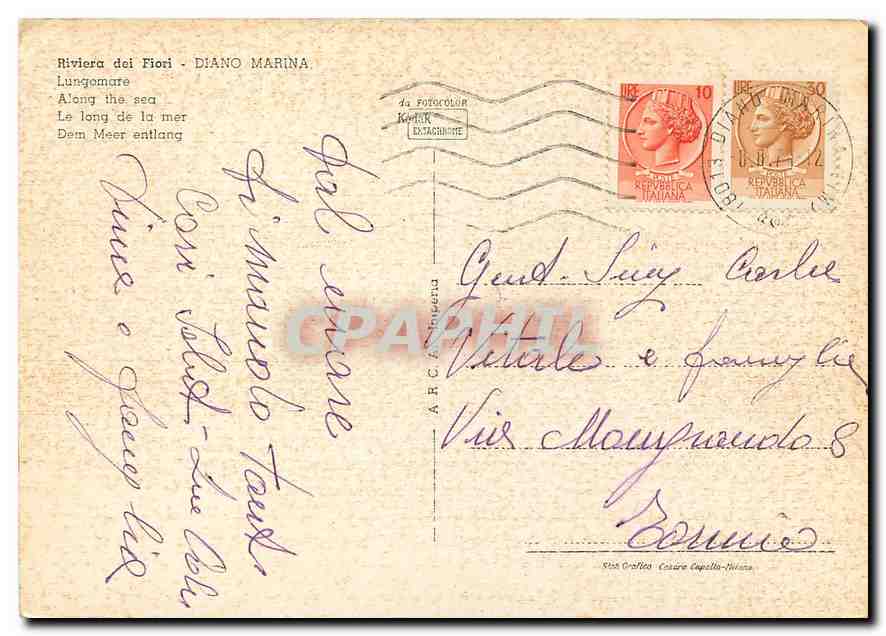 Riviera dei Fiori - DIANO MARINA
Lungomare
Along the sea
Le long de la mer
Dem Meer entlang
da FOTOCOLOR
Kodak
EKTACHROME
LIRE 10
REPVBBLICA
ITALIANA
LIRE 30
REPVBBLICA
ITALIANA
DIANO MARINA
18013
Dal mare
Vi mando tanti
Cari Saluti
e famiglia
A.R.C.A. Imperia
CPAPHIL
Gent. Sig. Carlo
Vitale e famiglia
Via Mongrando 8
Torino
Stab Grafico Cesare Capello-Milano